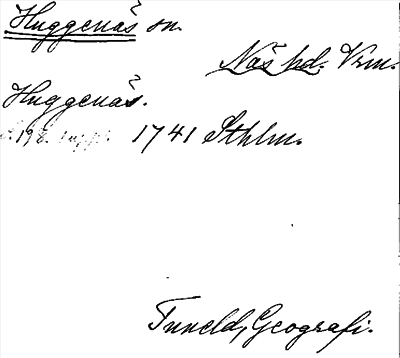 Huggenäs sn.
Näs hd. Vrm.
Huggenäs.
s. 198. 1741 Sthlm.
Tuneld, Geografi.